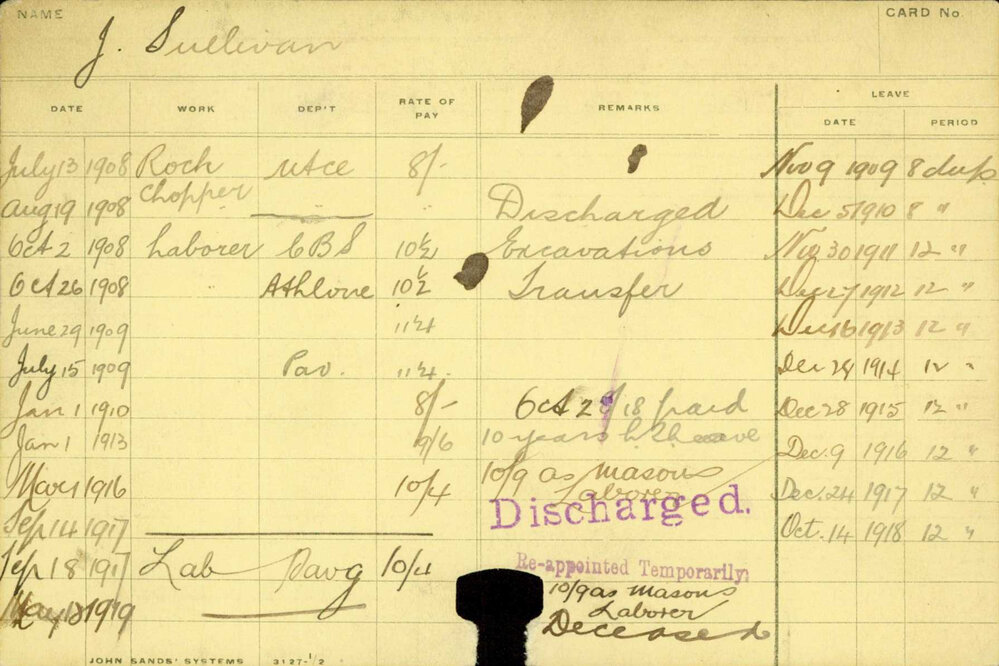 NAME
CARD No.
J. Sullivan
DATE WORK DEP'T RATE OF PAY REMARKS LEAVE
DATE PERIOD
July 13 1908 Rock Mtce 8/- Nov 9 1909 8 days
Chopper
Aug 19 1908 Discharged Dec 5 1910 8 "
Oct 2 1908 Laborer CBS 10½ Excavations Nov 30 1911 12 "
Oct 26 1908 Athlone 10½ Transfer Dec 27 1912 12 "
June 29 1909 11¼ Dec 16 1913 12 "
July 15 1909 Pav. 11¼ Dec 28 1914 12 "
Jan 1 1910 8/- Oct 28/18 paid Dec 28 1915 12 "
Jan 1 1913 9/6 10 years Dec. 9 1916 12 "
Mar 1 1916 10/4 10/9 as Masons Dec. 24 1917 12 "
Laborer
Discharged.
Sep 14 1917 Oct. 14 1918 12 "
Sep 18 1917 Lab Pavg 10/4 Re-appointed Temporarily
10/9 as Masons
Laborer
May 13 1919 Deceased
JOHN SANDS' SYSTEMS 3127-1/2